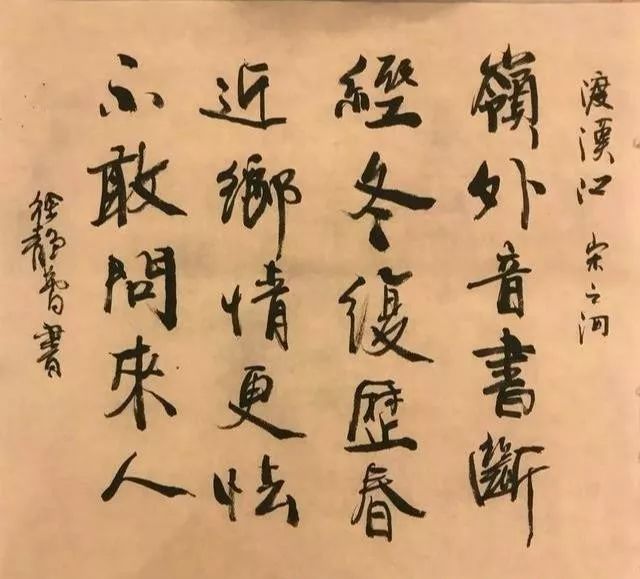 渡漢江 宋之河
嶺外音書斷
經冬復歷春
近鄉情更怯
不敢問來人
徐静書